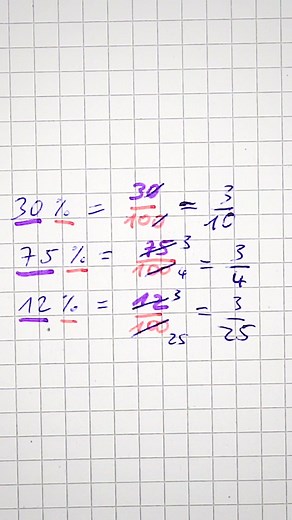 30 % = 30/100 = 3/10
75 % = 75/100 3 4 = 3/4
12 % = 12/100 3 25 = 3/25